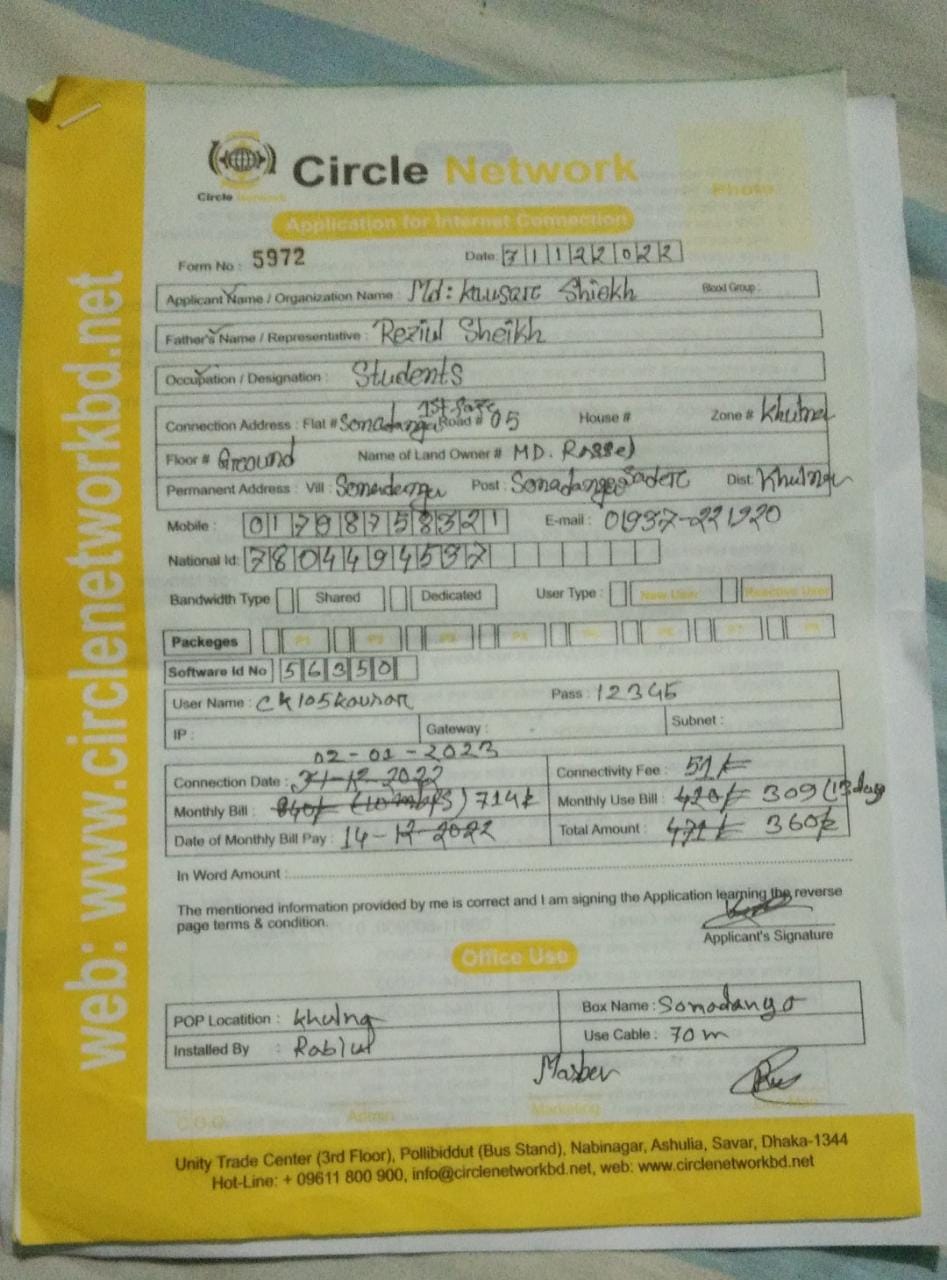 Circle Network
Circle Network
Photo
Application for Internet Connection
Form No : 5972
Date: 31122022
Applicant Name / Organization Name : Md: Kausare Shiekh Blood Group :
Father's Name / Representative : Reziul Sheikh
Occupation / Designation : Students
Connection Address : Flat # Sonadanga 1st Road # 05 House # Zone # Khulna
Floor # Groound Name of Land Owner # MD. Rassel
Permanent Address : Vill : Sonadanga Post : Sonadanga Dist: Khulna
Mobile : 01798758321 E-mail : 01937-221920
National Id: 7804494597
Bandwidth Type Shared Dedicated User Type : New User Reactive User
Packeges P1 P2 P3 P4 P5 P6 P7 P8
Software Id No 56350
User Name : ck105kousar Pass : 12345
IP : Gateway : Subnet :
02-01-2023
Connection Date : 31-12-2022 Connectivity Fee : 51/-
Monthly Bill : 840/- (10mbps) 714/- Monthly Use Bill : 420/- 309 (13day
Date of Monthly Bill Pay : 14-12-2022 Total Amount : 471/- 360/-
In Word Amount :
The mentioned information provided by me is correct and I am signing the Application learning the reverse
page terms & condition.
Applicant's Signature
Office Use
POP Locatition : Khulna Box Name : Sonadanga
Installed By : Rabiul Use Cable : 70 m
C.O.O. Admin Marketing
Unity Trade Center (3rd Floor), Pollibiddut (Bus Stand), Nabinagar, Ashulia, Savar, Dhaka-1344
Hot-Line: + 09611 800 900, info@circlenetworkbd.net, web: www.circlenetworkbd.net
web: www.circlenetworkbd.net